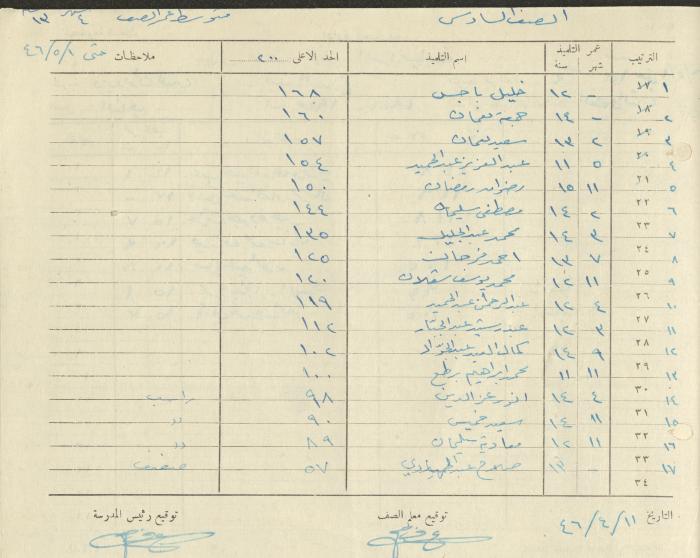 الصف السادس
متوسط عمر الصف ٤ شهر ١٣ سنة
حتى ٤٦/٥/١
الترتيب عمر التلميذ شهر سنة اسم التلميذ الحد الاعلى ٢٠٠ ملاحظات
١ ١٧ – ١٢ خليل ناجي ١٦٨
٢ ١٨ – ١٤ جمعة نعمان ١٦٠
٣ ١٩ ٢ ١٣ سعيد نعمان ١٥٧
٤ ٢٠ ٥ ١١ عبد العزيز عبد الحميد ١٥٤
٥ ٢١ ١١ ١٥ رضوان رمضان ١٥٠
٦ ٢٢ ٢ ١٤ مصطفى سليمان ١٤٤
٧ ٢٣ ٣ ١٤ محمد عبد الجليل ١٣٥
٨ ٢٤ ٧ ١٣ احمد فرحان ١٢٥
٩ ٢٥ ١١ ١٢ محمد يوسف ١٢٠
١٠ ٢٦ ٤ ١٢ عبد الرحمن عبد الحميد ١١٩
١١ ٢٧ ٣ ١٢ عبد رشيد عبد الجبار ١١٢
١٢ ٢٨ ٩ ١٤ كمال العبد عبد الجواد ١٠٢
١٣ ٢٩ ١١ ١١ محمد ابراهيم ١٠٠
١٤ ٣٠ ٤ ١٤ انور عز الدين ٩٨ راسب
١٥ ٣١ ١١ ١٤ سعيد خميس ٩٠ 〃
١٦ ٣٢ ١١ ١٢ معاوية سليمان ٨٩ 〃
١٧ ٣٣ – ١٣ ٥٧ ضعيف
٣٤
التاريخ ٤٦/٤/١١ توقيع معلم الصف توقيع رئيس المدرسة